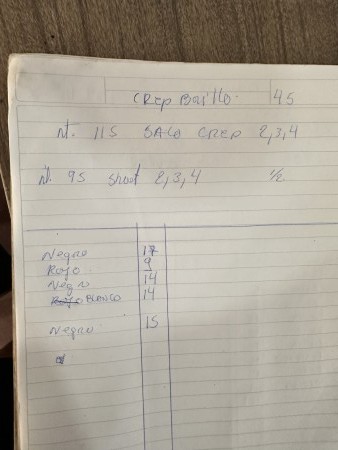 CREP Brillo 45
nt. 115 SACO CREP 2,3,4
nt. 95 short 2,3,4 1/2
Negro 17
Rojo 9
Negro 14
BLANCO 14
Negro 15